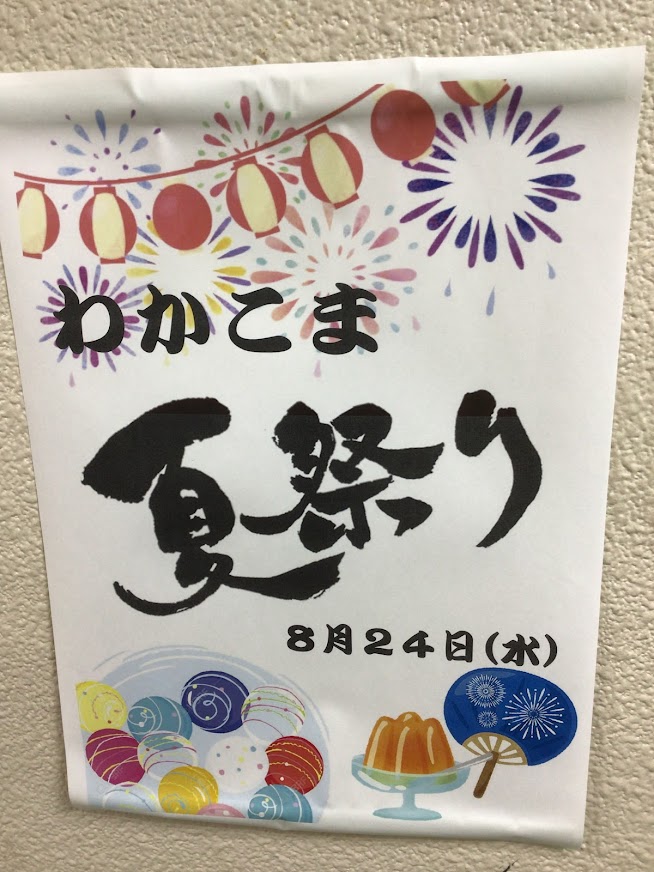 わかこま
夏祭り
８月２４日(水)